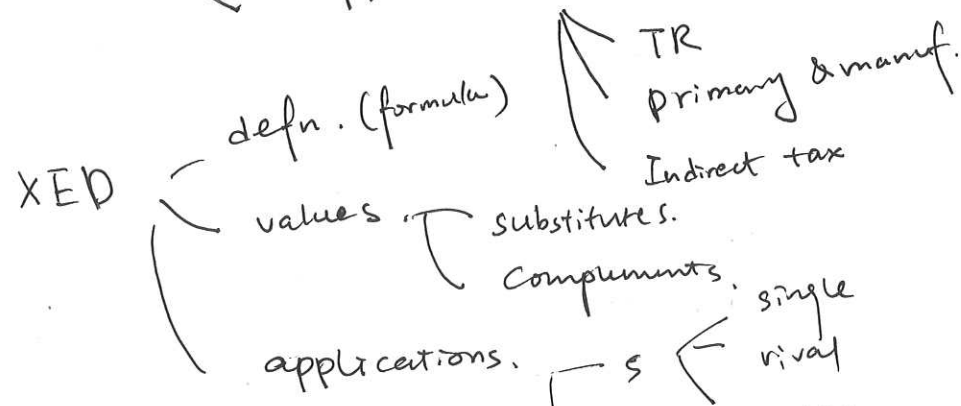 TR
primary & manuf.
Indirect tax
XED
defn. (formula)
values.
substitutes.
Complements.
applications.
S
single
rival